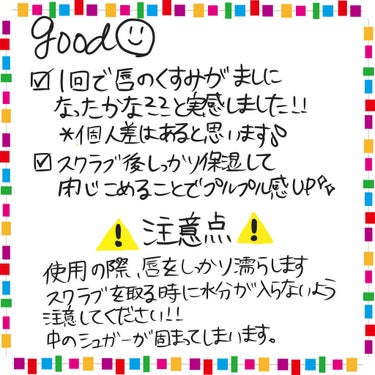 good
1回で唇のくすみがましに
なったかな??と実感しました!!
*個人差はあると思います♪
スクラブ後しっかり保湿して
閉じこめることでプルプル感UP
注意点
使用の際、唇をしっかり濡らします
スクラブを取る時に水分が入らないよう
注意してください!!
中のシュガーが固まってしまいます。